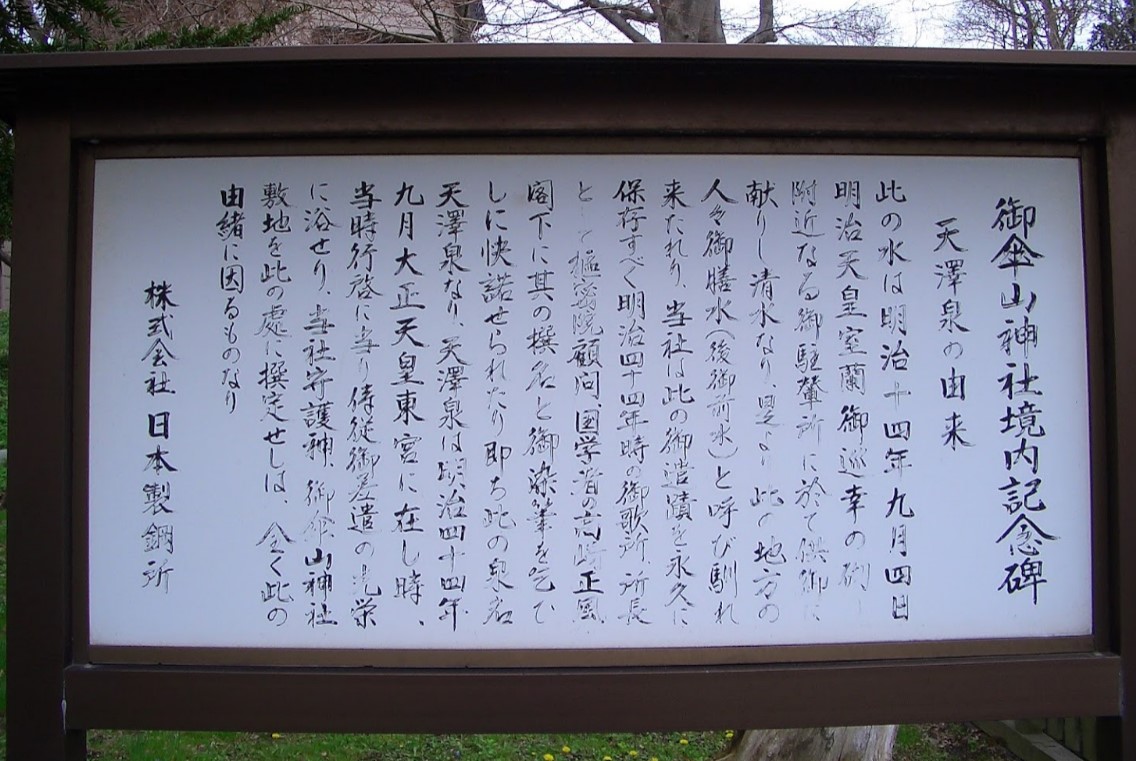 御傘山神社境内記念碑
天澤泉の由来
此の水は明治十四年九月四日
明治天皇室蘭御巡幸の砌
附近なる御駐輦所に於て供御に
献りし清水なり、是より此の地方の
人々御膳水(後御前水)と呼び馴れ
来たれり、当社は此の御遺蹟を永久に
保存すべく明治四十四年時の御歌所、所長
として樞密院顧問、国学者の高崎正風
閣下に其の撰名と御染筆を乞ひ
しに快諾せられたり即ち此の泉名
天澤泉なり、天澤泉は明治四十四年
九月大正天皇東宮に在し時、
当時行啓に当り侍従御差遣の光栄
に浴せり、当社守護神、御傘山神社
敷地を此の處に撰定せしは、全く此の
由緒に因るものなり
株式会社日本製鋼所